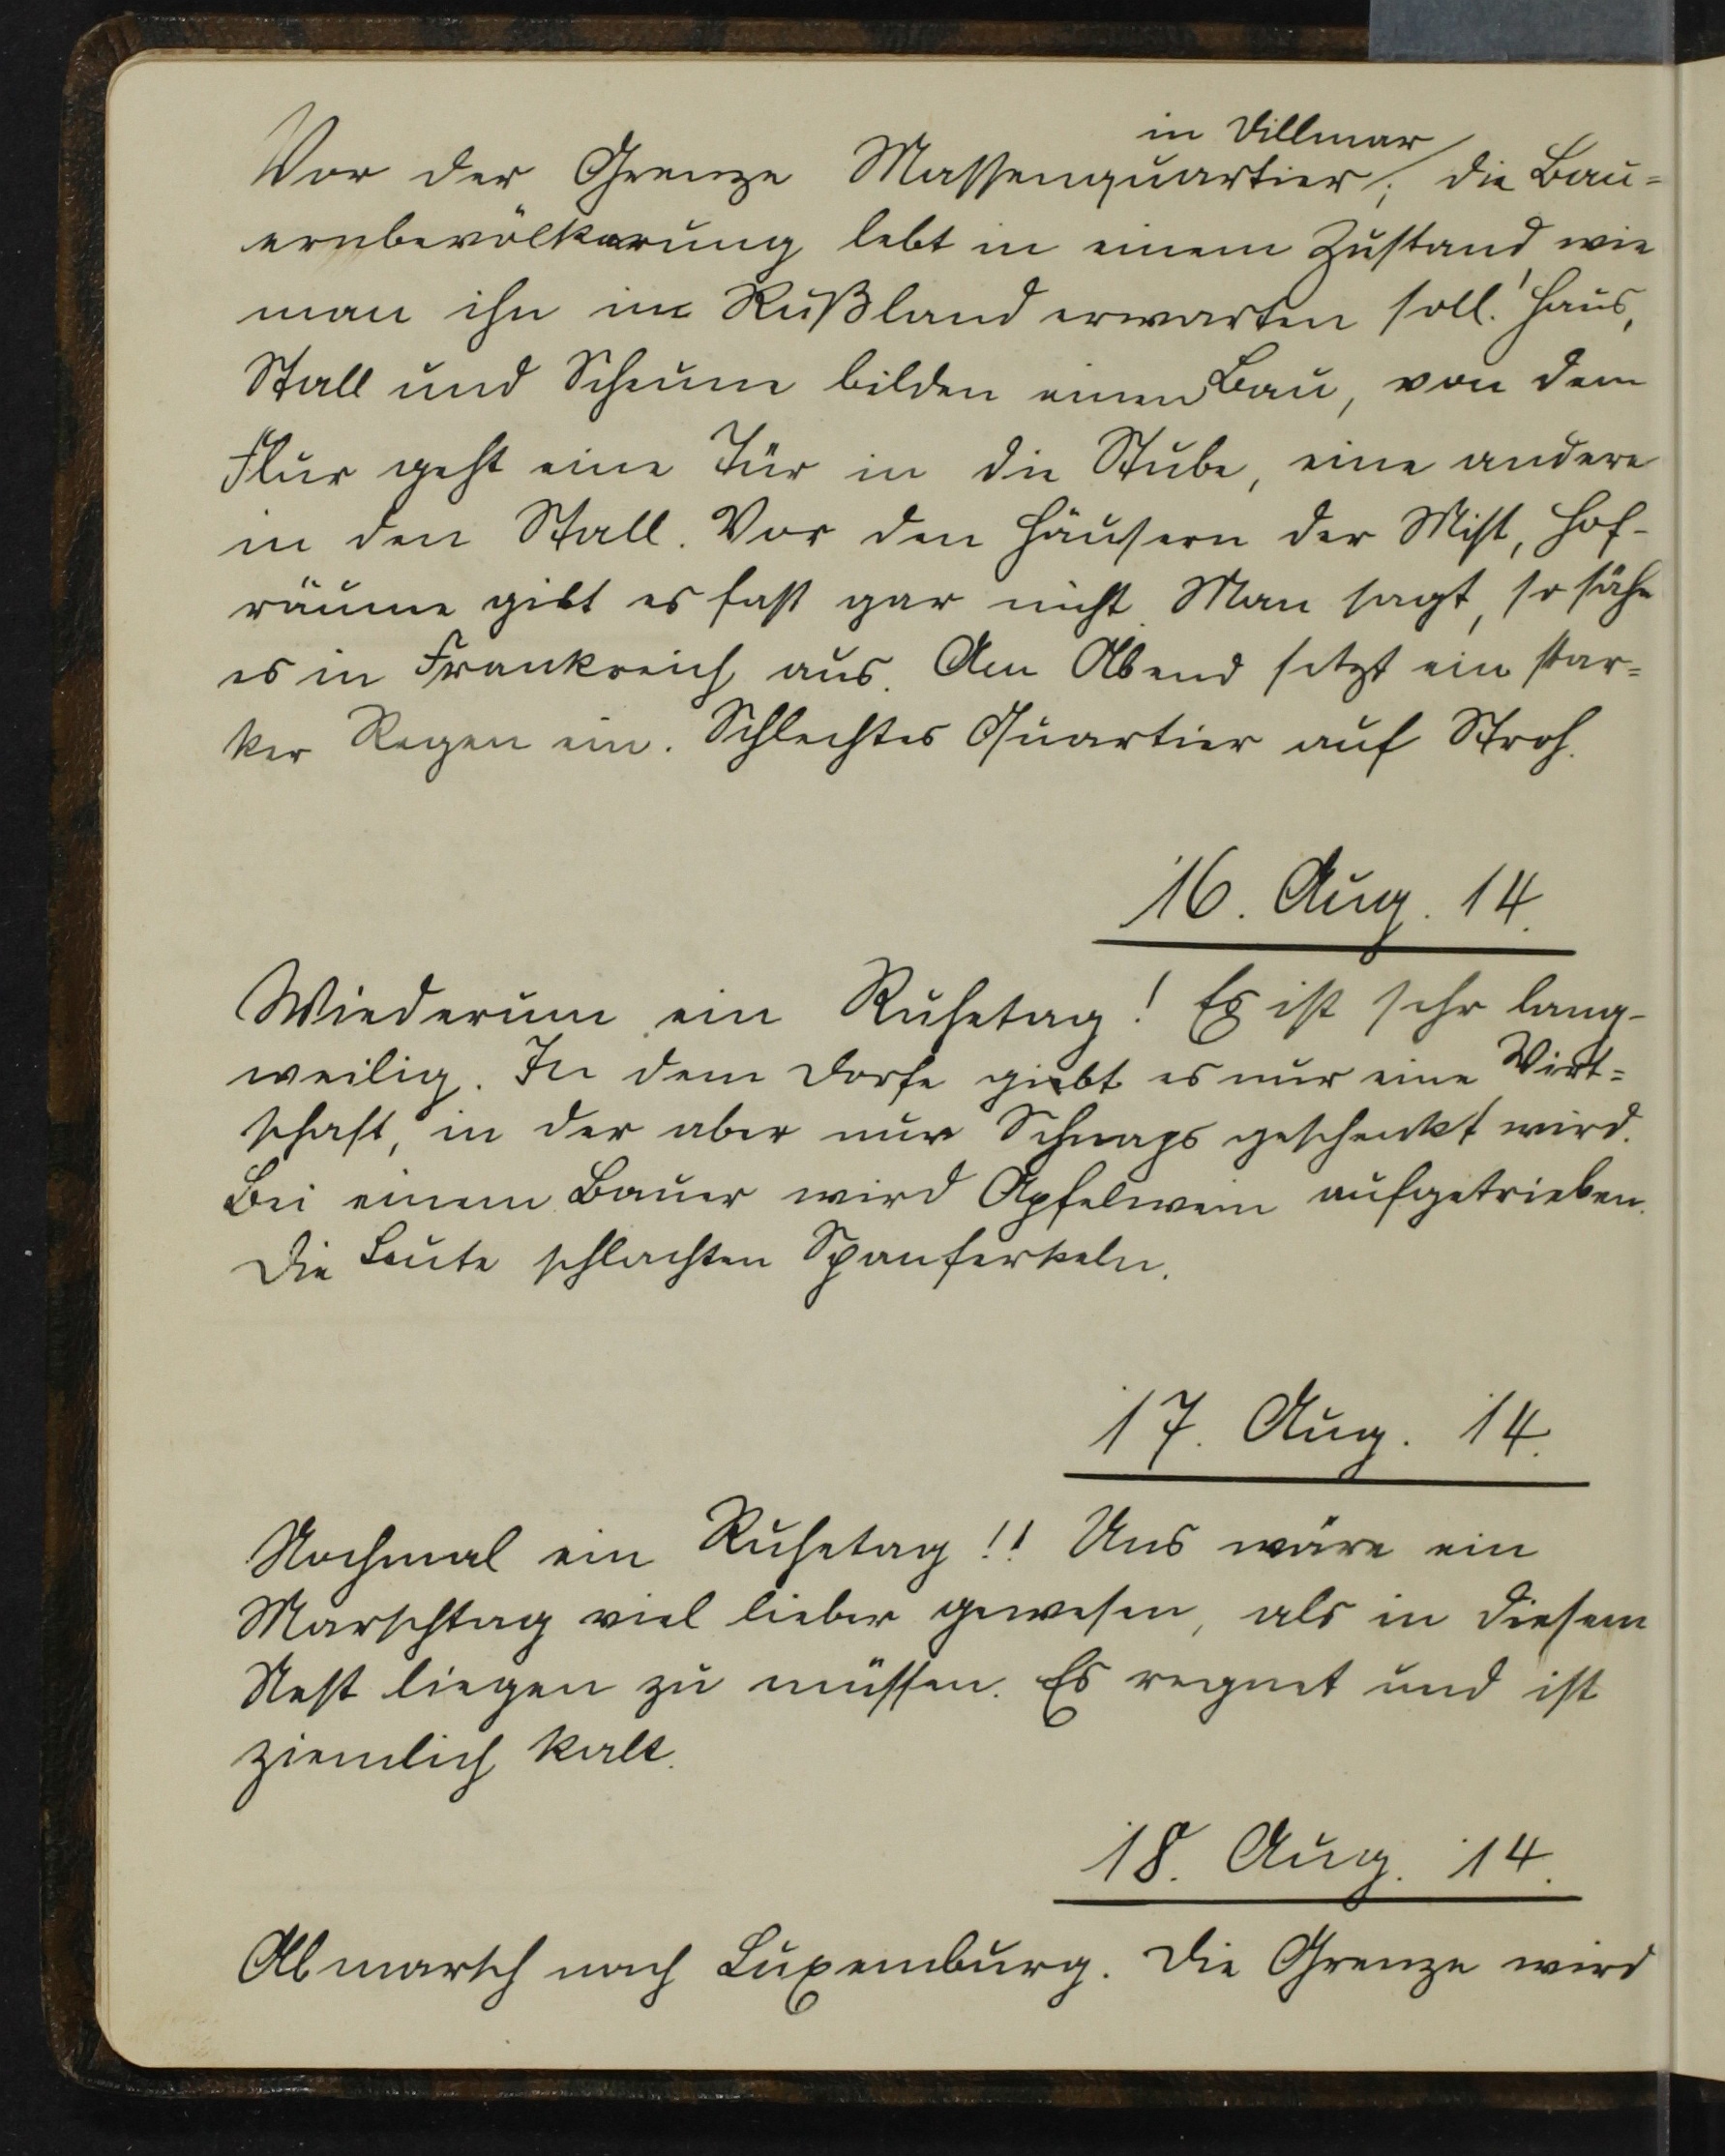 in Dillmar
Vor der Grenze Massenquartier; die Bau=
ernbevölkerung lebt in einem Zustand wie
man ihn in Rußland erwarten soll! Haus,
Stall und Scheune bilden einen Bau, von dem
Flur geht eine Tür in die Stube, eine andere
in den Stall. Vor den Häusern der Mist, Hof-
räume gibt es fast gar nicht. Man sagt, so sähe
es in Frankreich aus. Am Abend setzt ein star=
ker Regen ein. Schlechtes Quartier auf Stroh.
16. Aug. 14.
Wiederum ein Ruhetag! Es ist sehr lang-
weilig. In dem Dorfe giebt es nur eine Wirt=
schaft, in der aber nur Schnaps geschenkt wird.
Bei einem Bauer wird Apfelwein aufgetrieben.
Die Leute schlachten Spanferkeln.
17. Aug. 14.
Nochmal ein Ruhetag!! Uns wäre ein
Marschtag viel lieber gewesen, als in diesem
Nest liegen zu müssen. Es regnet und ist
ziemlich kalt.
18. Aug. 14.
Abmarsch nach Luxemburg. Die Grenze wird